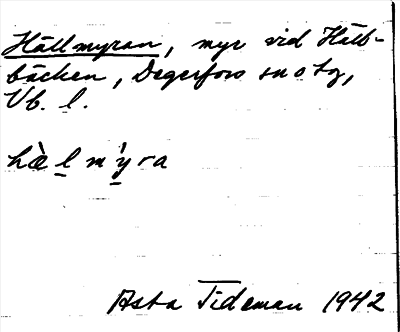 Hällmyran, myr vid Häll-
bäcken, Degerfors sn o tg,
Vb. l.
hæ̀l m'yra
Asta Tideman 1942